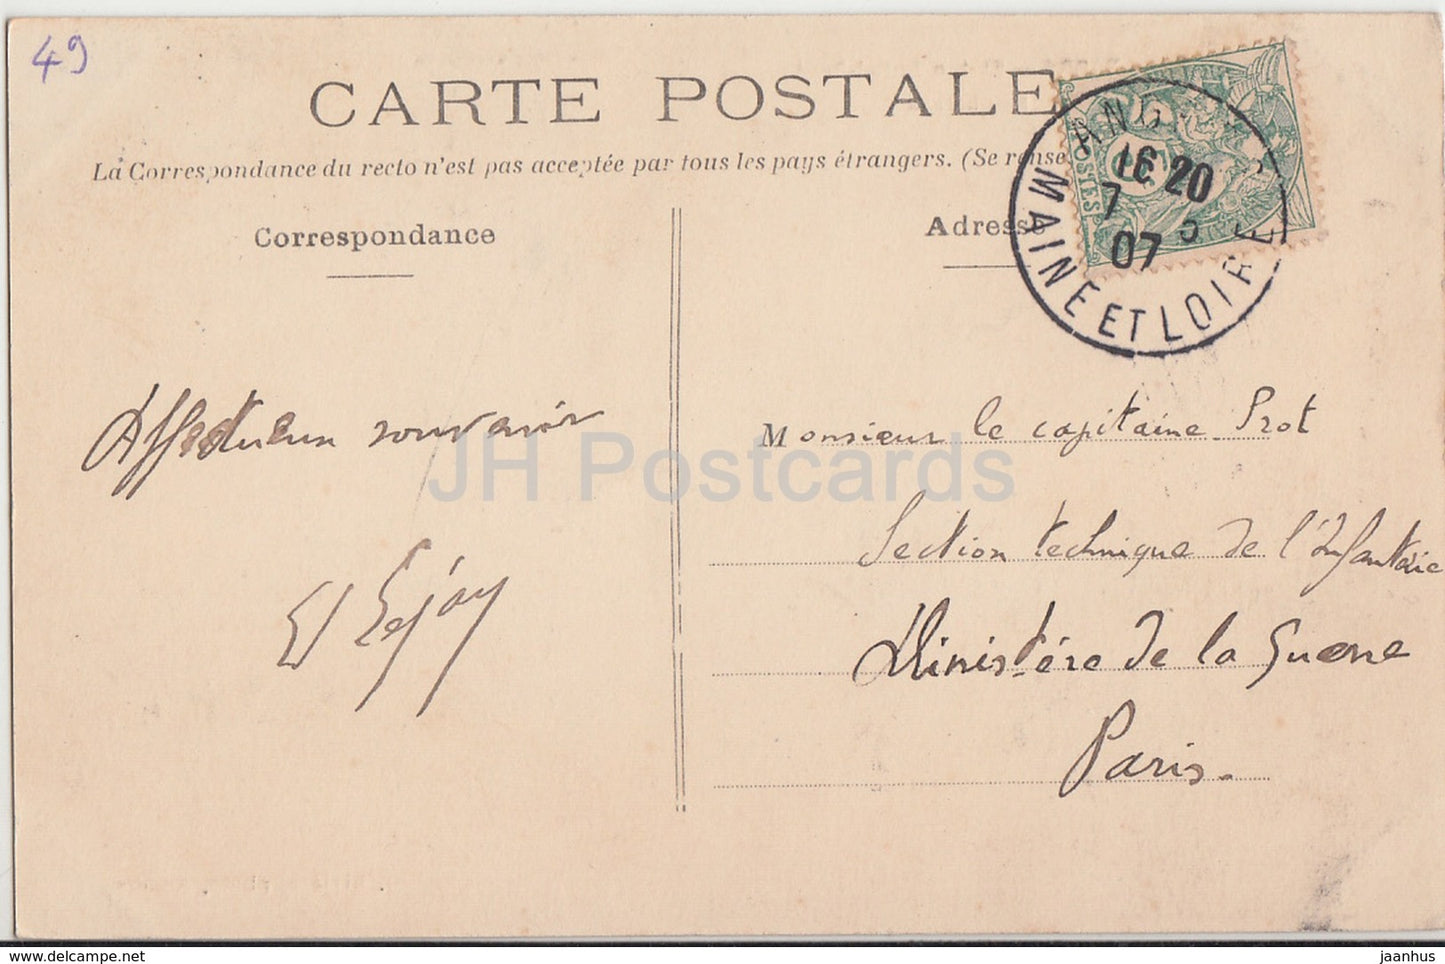 49
CARTE POSTALE
La Correspondance du recto n'est pas acceptée par tous les pays étrangers. (Se rense
Correspondance
Adresse
POSTES
16 20
7 5
07
MAINE ET LOIRE
Affectueux souvenir
Monsieur le capitaine Prot
Section technique de l'Infanterie
Ministère de la Guerre
Paris.
JH Postcards
www.delcampe.net
jaanhus